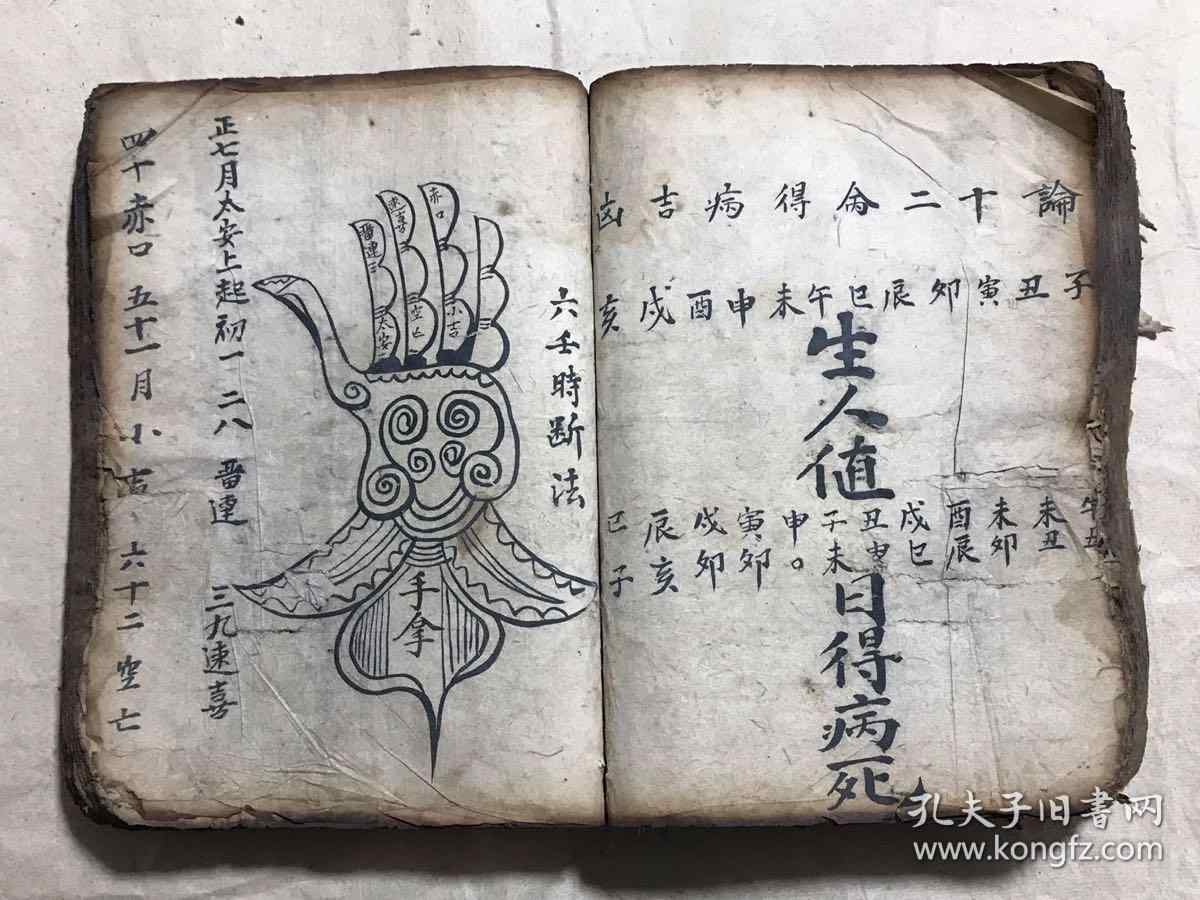 論十二禽得病吉凶
子丑寅卯辰巳午未申酉戌亥
生人值
未丑 未卯 酉辰 戌巳 丑申 子未 申。 寅卯 戌卯 辰亥 巳子
日得病死
六壬時断法
赤口
小吉
速喜
空亡
畱連
太安
手拿
正七月太安上起初一 二八 畱連 三九速喜
四十赤口 五十一月小吉、六十二空亡
孔夫子旧书网
www.kongfz.com